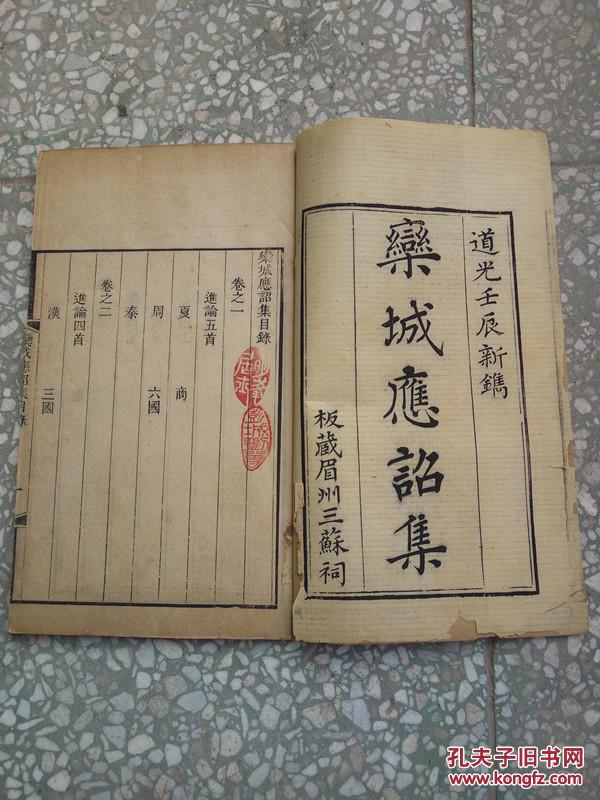 道光壬辰新鐫
欒城應詔集
板藏眉州三蘇祠
欒城應詔集目錄
卷之一
進論五首
夏 商
周 六國
秦
卷之二
進論四首
漢 三國
欒城應詔集目錄
一
孔夫子旧书网
www.kongfz.com